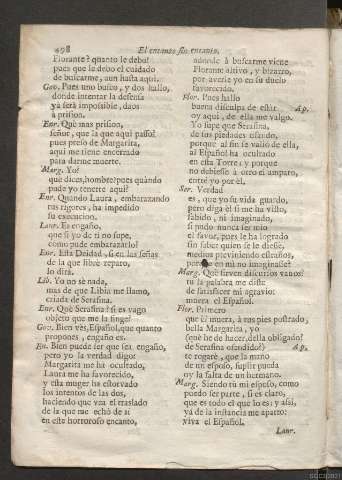 498 El encanto sin encanto.
Florante? quanto le debo!
pues que le debo el cuidado
de buscarme, aun hasta aqui.
Gov. Pues uno busco, y dos hallo,
donde intentar la defensa
yà serà impossible, daos
à prision.
Enr. Què mas prision,
señor, que la que aqui passo?
pues preso de Margarita,
aqui me tiene encerrado
para darme muerte.
Marg. Yo?
què dices, hombre? pues quándo
pude yo tenerte aqui?
Enr. Quando Laura, embarazando
tus rigores, ha impedido
su execucion.
Laur. Es engaño,
que si yo de ti no supe,
como pude embarazarlo?
Enr. Esta Deidad, si en las señas
de la que librè reparo,
lo dirà.
Lib. Yo no sè nada,
mas de que Libia me llamo,
criada de Serafina.
Enr. Què Serafina? si es vago
objeto que me la finge?
Gov. Bien vès, Español, que quanto
propones, engaño es.
En. Bien puede ser que sea engaño,
pero yo la verdad digo:
Margarita me ha ocultado,
Laura me ha favorecido,
y esta muger ha estorvado
los intentos de las dos,
haciendo que vea el traslado
de la que me echò de sì
en este horroroso encanto,
adonde à buscarme viene
Florante altivo, y bizarro,
por averle yo en su duelo
favorecido.
Flor. Pues hallo
buena disculpa de estàr Ap.
oy aqui, de ella me valgo.
Yo supe que Serafina,
de sus piedades usando,
porque al fin se valiò de ella,
al Español ha ocultado
en esta Torre; y porque
no debiesse à otro el amparo,
entrè yo por èl.
Ser. Verdad
es, que yo su vida guardo,
pero diga èl si me ha visto,
sabido, ni imaginado,
si pudo nunca ser mio
el favor, pues le ha logrado
sin saber quien se le diesse,
medios previniendo estraños,
para que en mì no imaginasse?
Marg. Què sirven discursos vanos?
tu la palabra me diste
de satisfacer mi agravio:
muera el Español.
Flor. Primero
que èl muera, à tus pies postrado,
bella Margarita, yo
(què he de hacer, della obligado?
de Serafina ofendido?) Ap.
te rogarè, que la mano
de un esposo, supla pueda
oy la falta de un hermano.
Marg. Siendo tù mi esposo, como
puedo ser parte, si es claro,
que es todo el que lo es; y assi,
yà de la instancia me aparto:
viva el Español.
Laur.